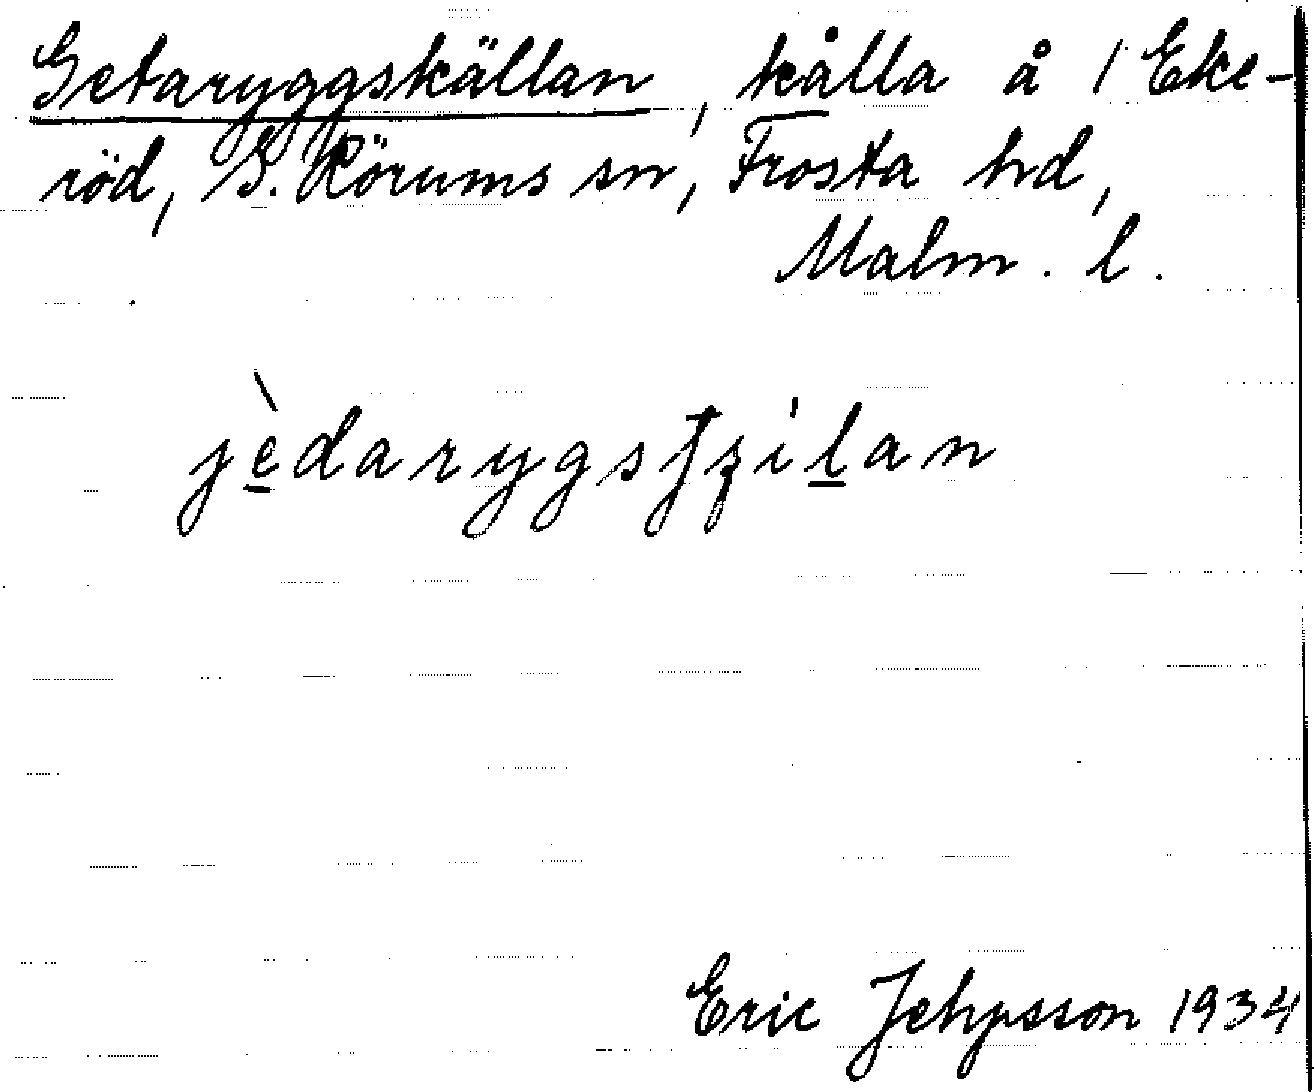 Getaryggskällan, källa å 1 Eke-
röd, S. Rörums sn, Frosta hd,
Malm. l.
Eric Jehpsson 1934